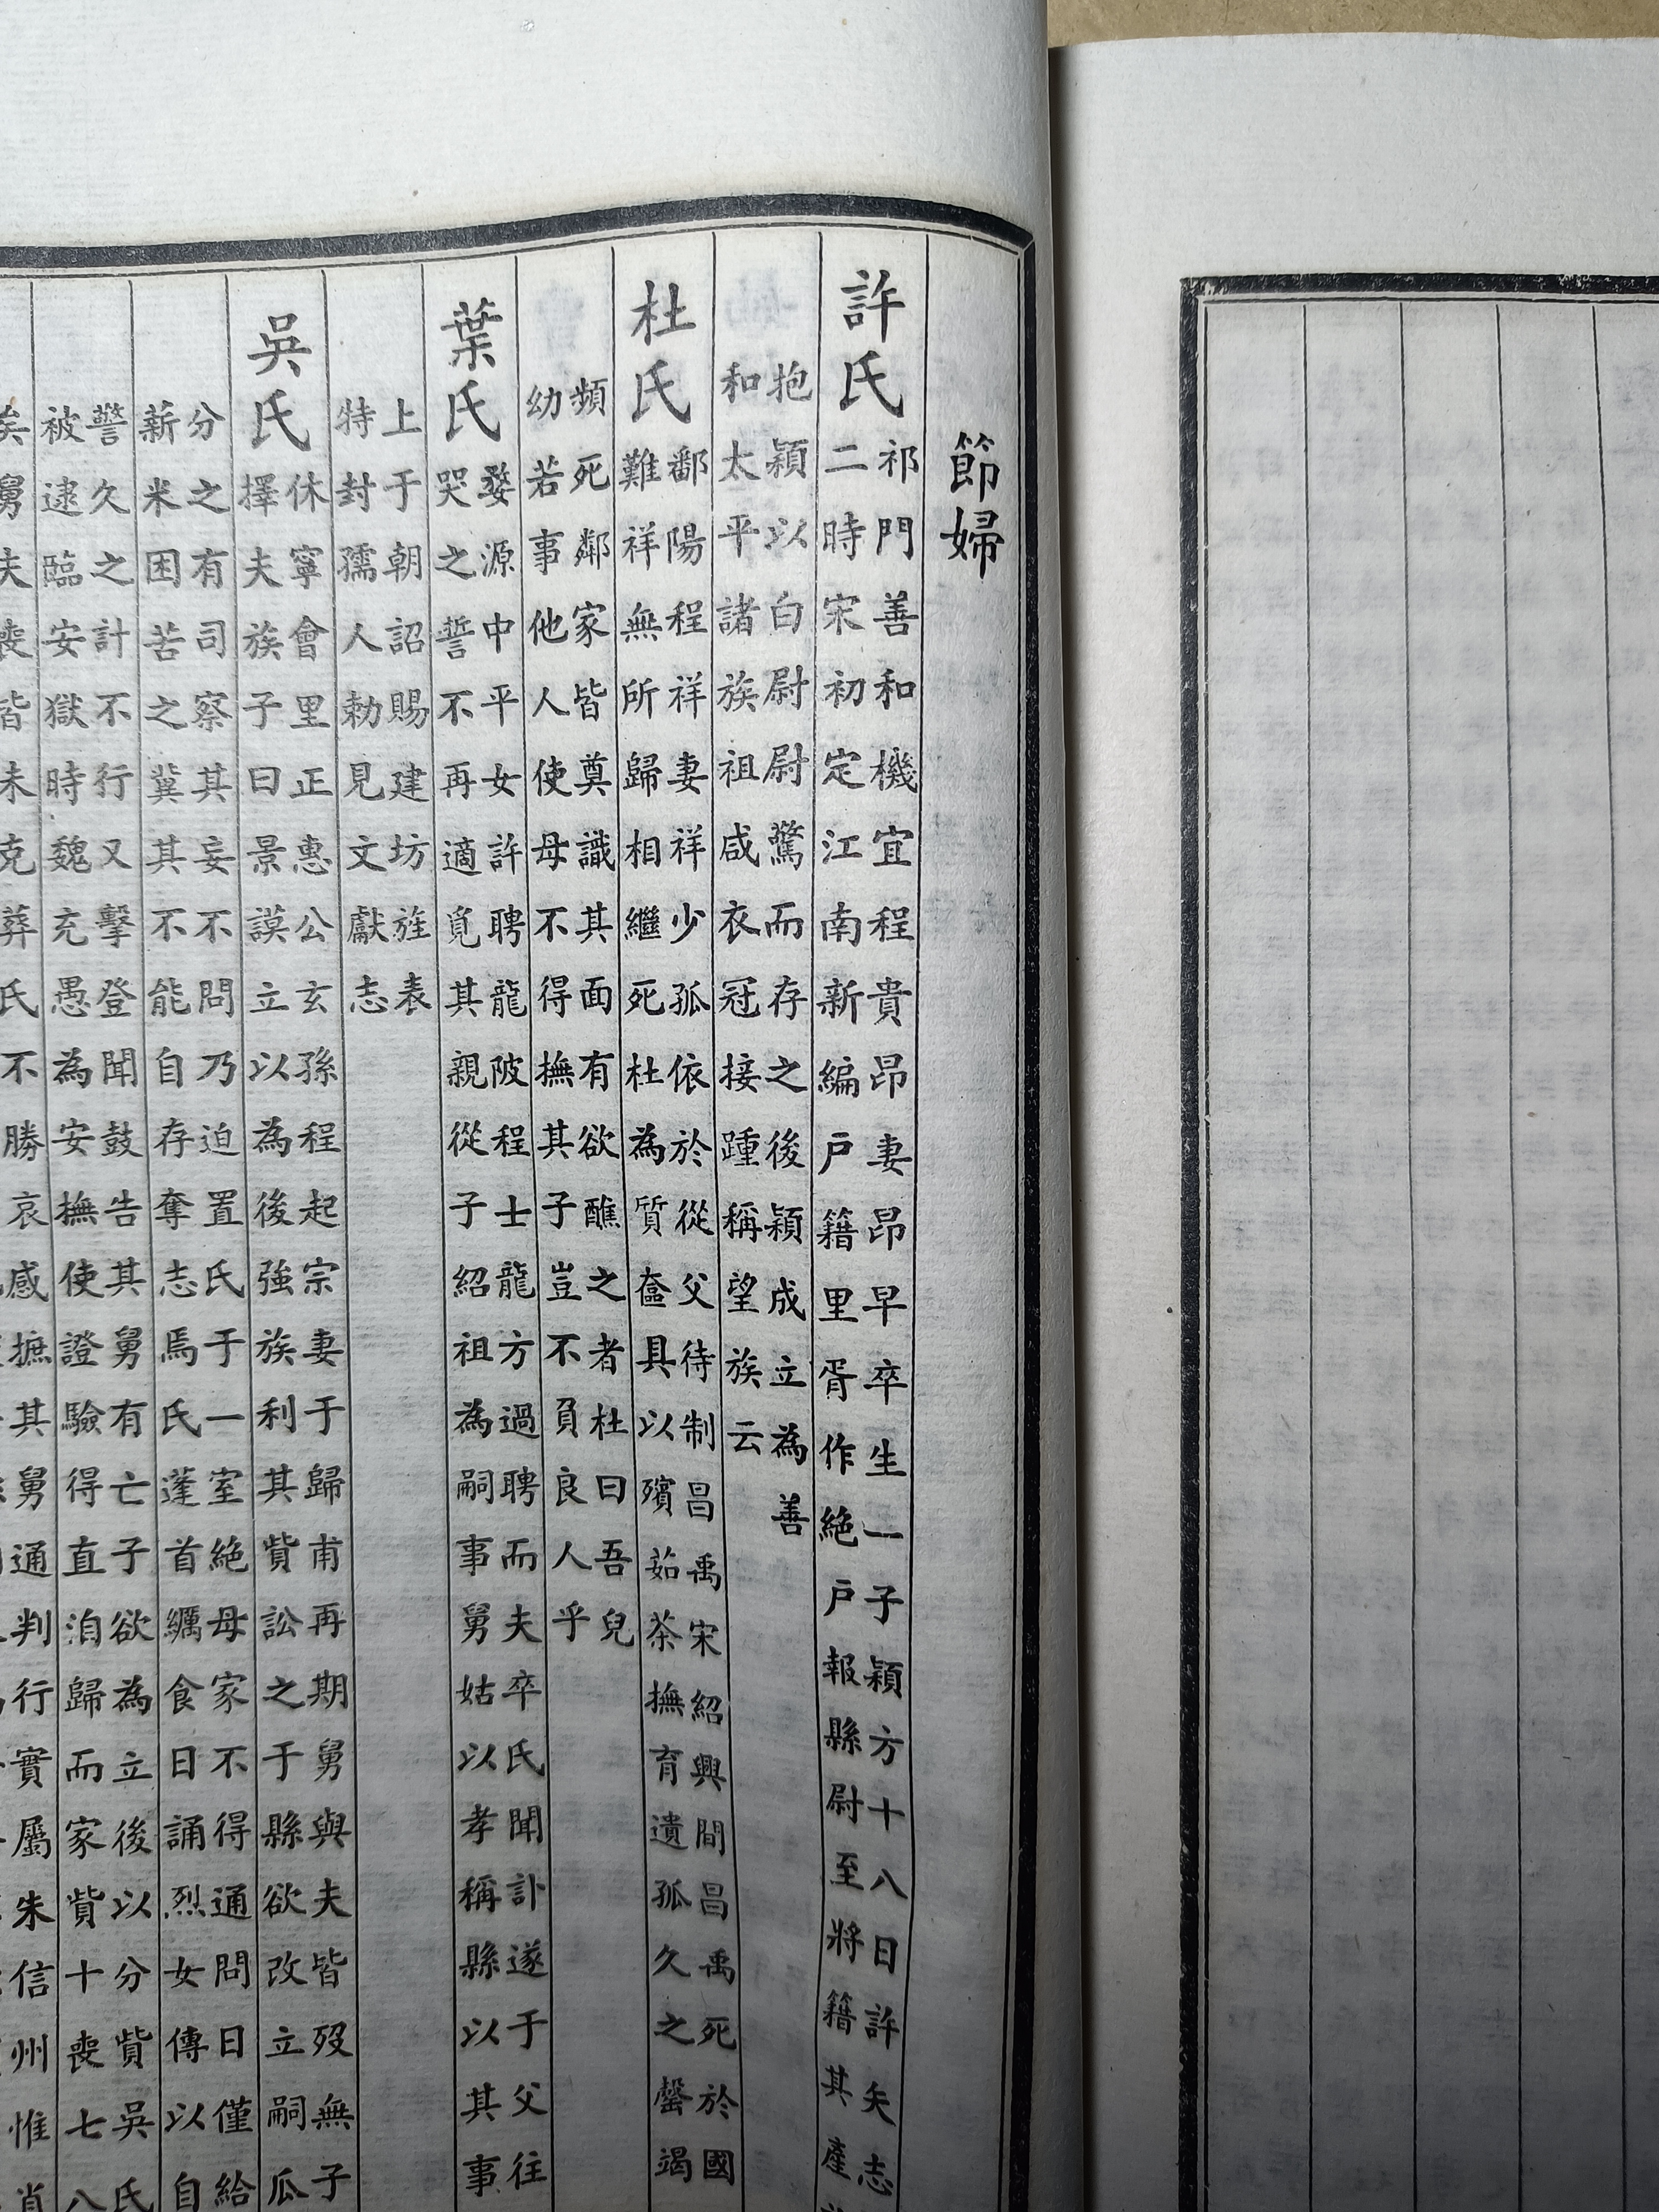 節婦
許氏
祁門善和機宜程貴昂妻昂早卒生一子穎方十八日許矢志
二時宋初定江南新編戶籍里胥作絕戶報縣尉至將籍其產
抱穎以白尉尉驚而存之後穎成立為善
和太平諸族祖咸衣冠接踵稱望族云
杜氏
鄱陽程祥妻祥少孤依於從父待制昌禹宋紹興間昌禹死於國
難祥無所歸相繼死杜為質奩具以殯茹荼撫育遺孤久之罄竭
頻死鄰家皆奠識其面有欲醮之者杜曰吾兒
幼若事他人使母不得撫其子豈不負良人乎
葉氏
婺源中平女許聘龍陂程士龍方過聘而夫卒氏聞訃遂于父往
哭之誓不再適覓其親從子紹祖為嗣事舅姑以孝稱縣以其事
上于朝詔賜建坊旌表
特封孺人勅見文獻志
吳氏
休寧會里正惠公玄孫程起宗妻于歸甫再期舅與夫皆歿無子
擇夫族子曰景謨立以為後強族利其貲訟之于縣欲改立嗣瓜
分之有司察其妄不問乃迫置氏于一室絕母家不得通問日僅給
薪米困苦之冀其不能自存奪志焉氏蓬首糲食日誦烈女傳以自
警久之計不行又擊登聞鼓告其舅有亡子欲為立後以分貲吳氏
被逮臨安獄時魏充愚為安撫使證驗得直洎歸而家貲十喪七八
矣舅夫喪皆未克葬氏不勝哀感摭其舅通判行實屬朱信州惟肖